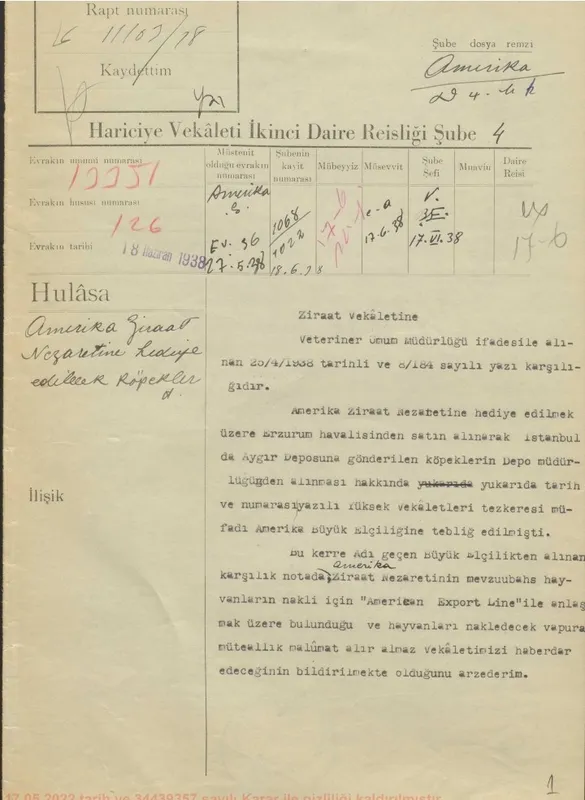 Rapt numarası
11103/78
Kaydettim
Şube dosya remzi
Amerika
Hariciye Vekâleti İkinci Daire Reisliği Şube 4
Evrakın umumî numarası
Müstenit olduğu evrakın numarası
Şubenin kayit numarası
Mübeyyiz
Müsevvit
Şube Şefi
Muavin
Daire Reisi
13351
Amerika
Ş.
Evrakın hususî numarası
126
1068
17-6
e-a
V.
Evrakın tarihi
18 Haziran 1938
Ev. 36
27.5.38
1022
18.6.38
17.6.38
17.VI.38
17-6
Hulâsa
Amerika Ziraat
Nezaretine hediye
edilecek köpekler
d.
İlişik
Ziraat Vekâletine
Veteriner Umum Müdürlüğü ifadesile alı-
nan 25/4/1938 tarihli ve 8/184 sayılı yazı karşılı-
ğıdır.
Amerika Ziraat Nezaretine hediye edilmek
üzere Erzurum havalisinden satın alınarak İstanbul
da Aygır Deposuna gönderilen köpeklerin Depo müdür-
lüğünden alınması hakkında yukarıda yukarıda tarih
ve numarası yazılı Yüksek Vekâletleri tezkeresi mü-
fadı Amerika Büyük Elçiliğine tebliğ edilmişti.
Bu kerre Adı geçen Büyük Elçilikten alınan
karşılık notada, Amerika Ziraat Nezaretinin mevzuubahs hay-
vanların nakli için "American Export Line"ile anlaş
mak üzere bulunduğu ve hayvanları nakledecek vapura
müteallik malûmat alır almaz Vekâletimizi haberdar
edeceğinin bildirilmekte olduğunu arzederim.
1
17.05.2022 tarih ve 34439357 sayılı Karar ile gizliliği kaldırılmıştır